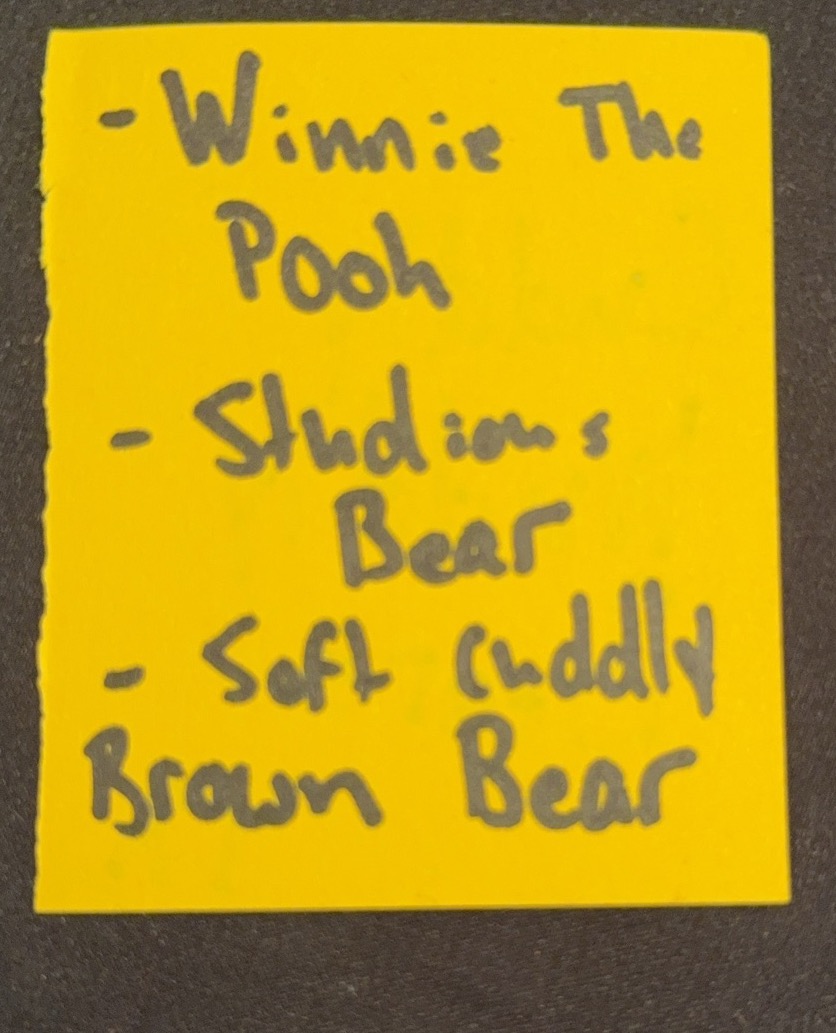 - Winnie The
Pooh
- Studious
Bear
- Soft Cuddly
Brown Bear